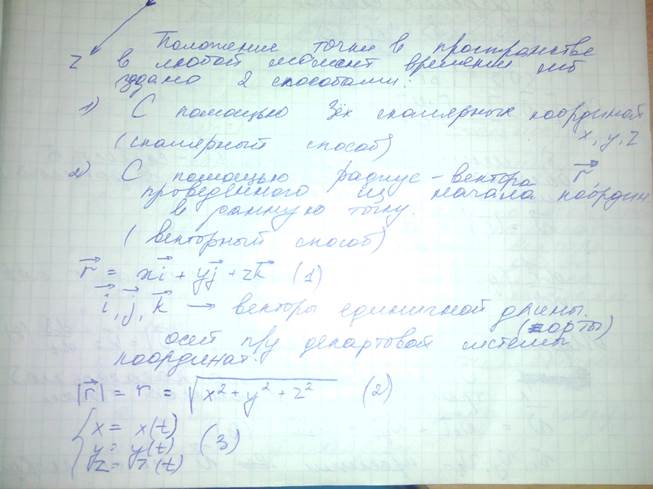 Z
Положение точки в пространстве
в любой момент времени мб
задано 2 способами:
1) С помощью 3ёх скалярных координат
x, y, z
(скалярный способ)
2) С помощью радиус-вектора r⃗
проведённого из начала координ
в данную точку.
(векторный способ)
r⃗ = xi⃗ + yj⃗ + zk⃗ (1)
i⃗, j⃗, k⃗ → векторы единичной длины
(орты)
осей п/у декартовой системы
координат
|r⃗| = r = √(x² + y² + z²) (2)
{ x = x(t)
y = y(t) (3)
z = z(t)